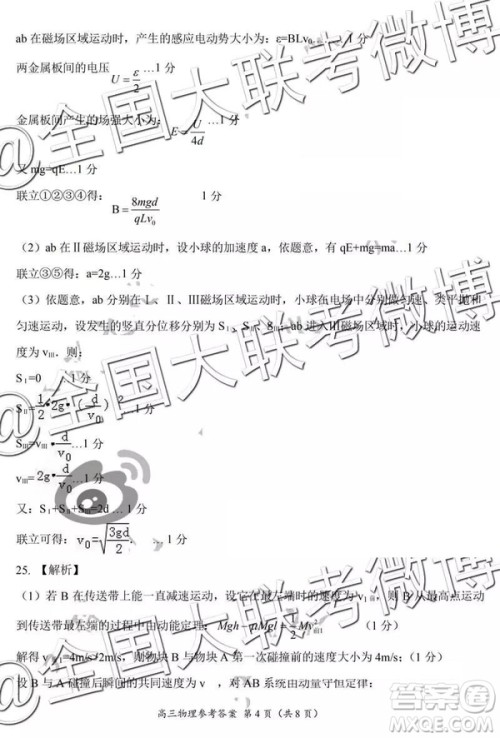 ab 在磁场区域运动时，产生的感应电动势大小为：ε=BLv₀ …1 分
两金属板间的电压 U=ε/2 …1 分
金属板间产生的场强大小为：E=U/4d …1 分
又 mg=qE…1 分
联立①②③④得：B=8mgd/qLv₀ 1 分
（2）ab 在Ⅱ磁场区域运动时，设小球的加速度 a，依题意，有 qE+mg=ma…1 分
联立③⑤得：a=2g…1 分
（3）依题意，ab 分别在Ⅰ、Ⅱ、Ⅲ磁场区域运动时，小球在电场中分别做匀速、类平抛和
匀速运动，设发生的竖直分位移分别为 SⅠ、SⅡ、SⅢ；ab 进入Ⅲ磁场区域时，小球的运动速
度为 vⅢ，则：
SⅠ=0 …1 分
SⅡ=1/2•2g•(d/v₀)² …1 分
SⅢ=vⅢ•d/v₀ …1 分
vⅢ=2g•d/v₀ …1 分
又：SⅠ+SⅡ+SⅢ=2d …1 分
联立可得：v₀=√(3gd/2). 1 分
25. 【解析】
（1）若 B 在传送带上能一直减速运动，设它在最左端时的速度为 v前1，则 B 从最高点运动
到传送带最左端的过程中由动能定理：Mgh－μMgl=1/2Mv²前1 （1 分）
解得 v前1=4m/s，则物块 B 与物块 A 第一次碰撞前的速度为 4m/s
设 B 与 A 碰撞后瞬间的共同速度为 v ，对 AB 系统由动量守恒定律：
高三物理参考答案 第 4 页（共 8 页）
@全国大联考微博
@全国大联考微博
答案圈